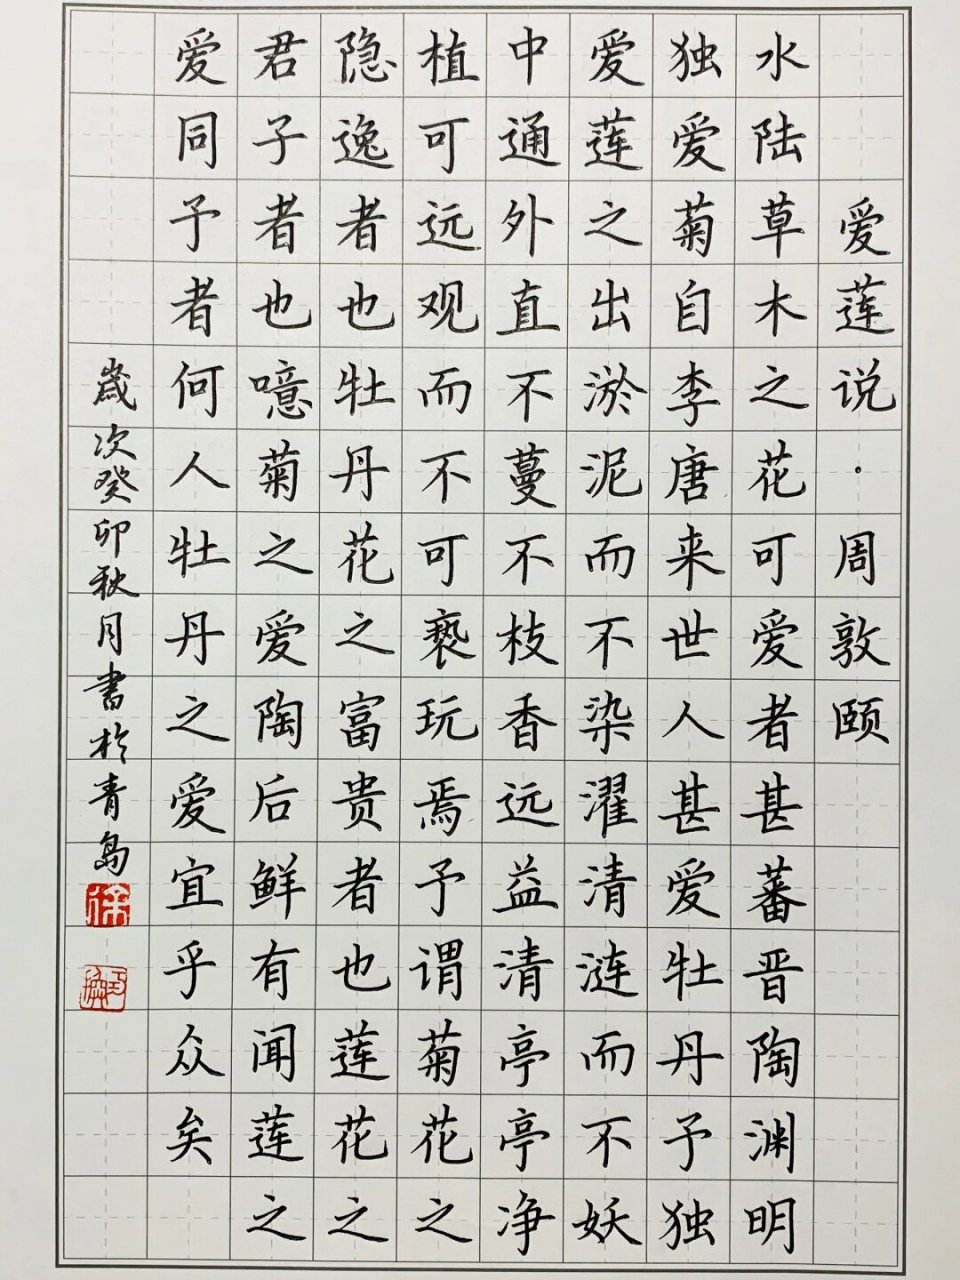 爱莲说·周敦颐
水陆草木之花可爱者甚蕃晋陶渊明
独爱菊自李唐来世人甚爱牡丹予独
爱莲之出淤泥而不染濯清涟而不妖
中通外直不蔓不枝香远益清亭亭净
植可远观而不可亵玩焉予谓菊花之
隐逸者也牡丹花之富贵者也莲花之
君子者也噫菊之爱陶后鲜有闻莲之
爱同予者何人牡丹之爱宜乎众矣
歲次癸卯秋月書於青岛
徐